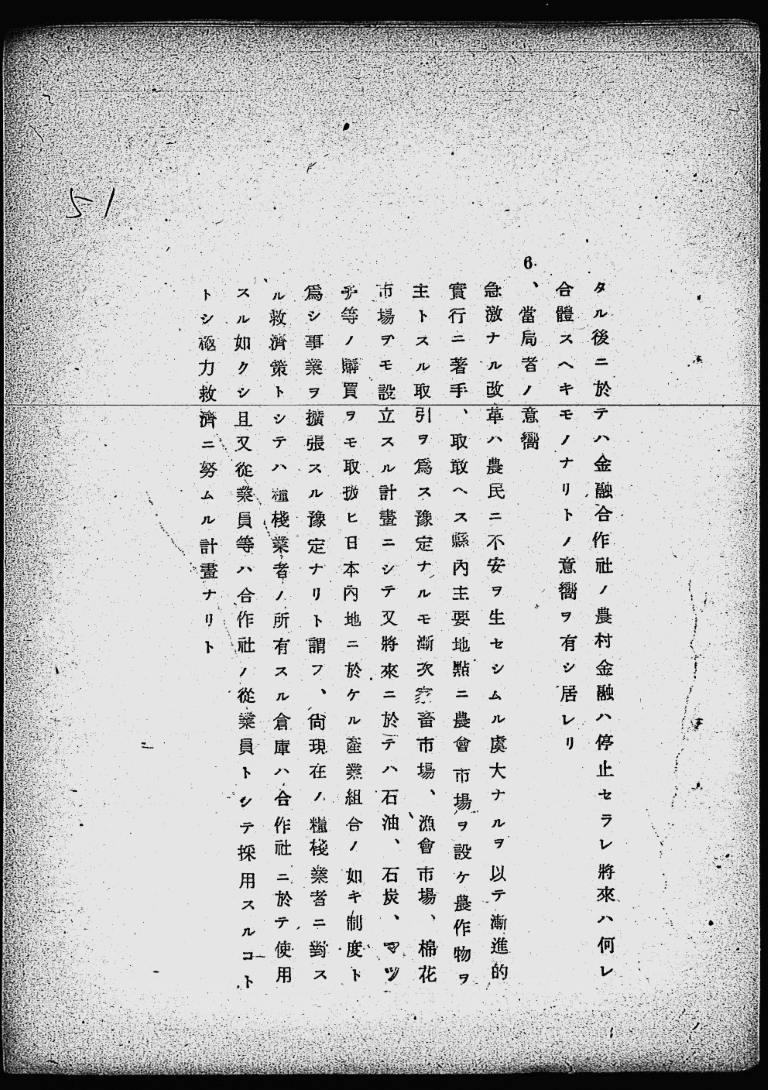 51
タル後ニ於テハ金融合作社ノ農村金融ハ停止セラレ將來ハ何レ
合體スヘキモノナリトノ意嚮ヲ有シ居レリ
6、當局者ノ意嚮
急激ナル改革ハ農民ニ不安ヲ生セシムル虞大ナルヲ以テ漸進的
實行ニ著手、取敢ヘス縣內主要地點ニ農會市場ヲ設ケ農作物ヲ
主トスル取引ヲ爲ス豫定ナルモ漸次家畜市場、漁會市場、棉花
市場ヲモ設立スル計畫ニシテ又將來ニ於テハ石油、石炭、マツ
チ等ノ購買ヲモ取扱ヒ日本內地ニ於ケル產業組合ノ如キ制度ト
爲シ事業ヲ擴張スル豫定ナリト謂フ、尙現在ノ糧棧業者ニ對ス
ル救濟策トシテハ糧棧業者ノ所有スル倉庫ハ合作社ニ於テ使用
スル如クシ且又從業員等ハ合作社ノ從業員トシテ採用スルコト
トシ極力救濟ニ努ムル計畫ナリト